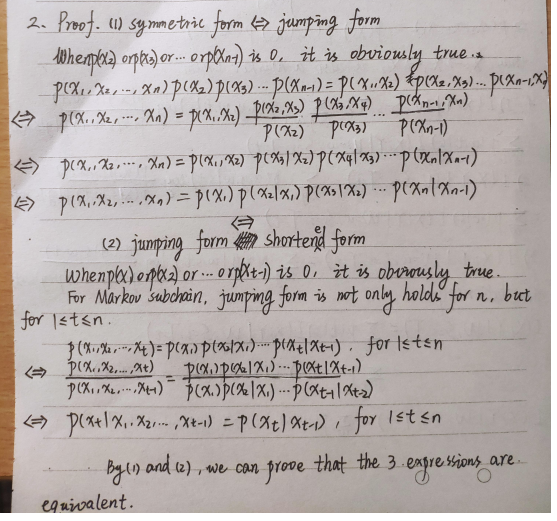 2. Proof. (1) symmetric form ⇔ jumping form
When p(x2) or p(x3) or ... or p(xn-1) is 0, it is obviously true.
p(x1, x2, ..., xn) p(x2) p(x3) ... p(xn-1) = p(x1, x2) p(x2, x3) ... p(xn-1, xn)
⇔ p(x1, x2, ..., xn) = p(x1, x2) p(x2, x3)/p(x2) p(x3, x4)/p(x3) ... p(xn-1, xn)/p(xn-1)
⇔ p(x1, x2, ..., xn) = p(x1, x2) p(x3|x2) p(x4|x3) ... p(xn|xn-1)
⇔ p(x1, x2, ..., xn) = p(x1) p(x2|x1) p(x3|x2) ... p(xn|xn-1)
(2) jumping form ⇔ shortened form
When p(x1) or p(x2) or ... or p(xt-1) is 0, it is obviously true.
For Markov subchain, jumping form is not only holds for n, but
for 1≤t≤n.
p(x1, x2, ..., xt) = p(x1) p(x2|x1) ... p(xt|xt-1), for 1≤t≤n
⇔ p(x1, x2, ..., xt)/p(x1, x2, ..., xt-1) = p(x1) p(x2|x1) ... p(xt|xt-1)/p(x1) p(x2|x1) ... p(xt-1|xt-2)
⇔ p(xt|x1, x2, ..., xt-1) = p(xt|xt-1), for 1≤t≤n
By (1) and (2), we can prove that the 3 expressions are
equivalent.